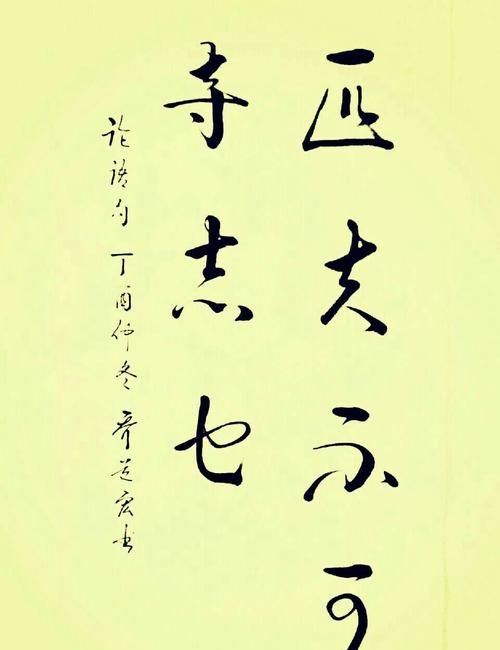 匹夫不可
夺志也
论语句 丁酉仲冬 书